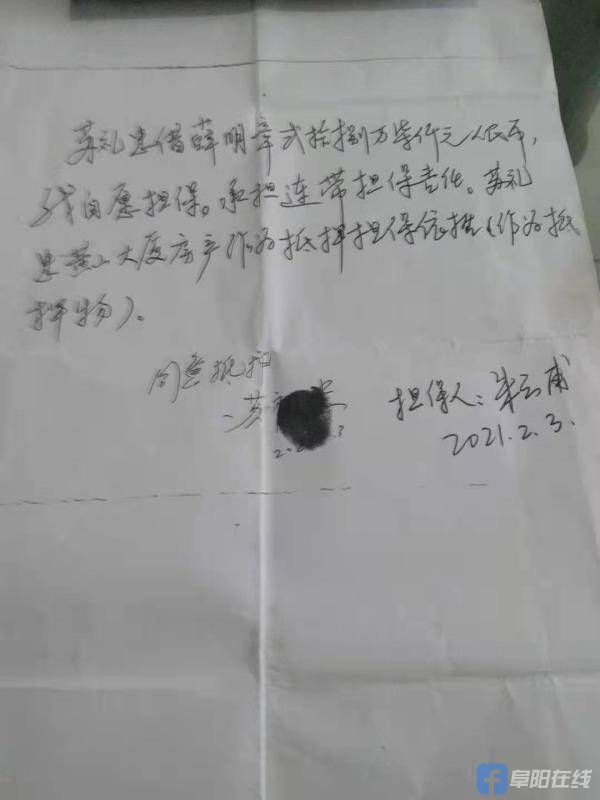 苏礼忠借薛明章弍拾捌万柒仟元人民币,
我自愿担保。承担连带担保责任。苏礼
忠黄山大厦房产作为抵押担保依据(作为抵
押物)。
同意抵押
苏 忠
担保人:朱云甫
2021.2.3.
阜阳在线